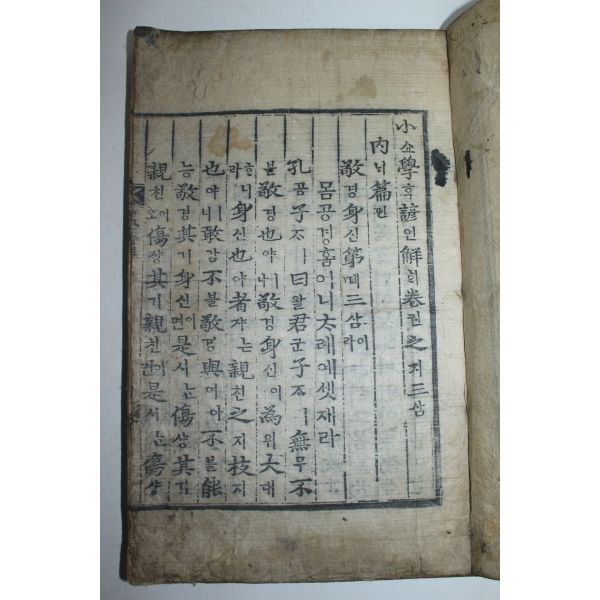 小쇼學ᄒᆞᆨ諺언解ᄒᆡ卷권之지三삼
內ᄂᆡ篇편
敬경身신第뎨三삼이라
몸공경홈이니大례예셋재라
孔공子ᄌᆞㅣ曰왈君군子ᄌᆞㅣ無무不
블敬경也야ㅣ나敬경身신이為위大대
ᄒᆞ니라身신也야者쟈ᄂᆞᆫ親친之지枝지
也야ㅣ니敢감不블敬경與여아不블能
능敬경其기身신이면是시ᄂᆞᆫ傷샹其기
親친이오傷샹其기親친이면是시ᄂᆞᆫ傷샹